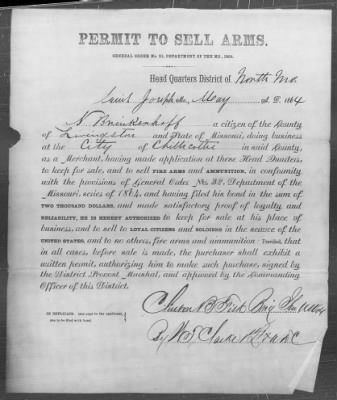 PERMIT TO SELL ARMS.
GENERAL ORDER No. 32, DEPARTMENT OF THE MO., 1864.
Head Quarters District of North Mo.
Saint Joseph Mo. May A. D. 1864
N. Brinkenhoff a citizen of the County
of Livingston and State of Missouri, doing business
at the City of Chillicothe in said County,
as a Merchant, having made application at these Head Quarters,
to keep for sale, and to sell FIRE ARMS and AMMUNITION, in conformity
with the provisions of General Order No. 32, Department of the
Missouri, series of 1864, and having filed his bond in the sum of
TWO THOUSAND DOLLARS, and made satisfactory proof of loyalty and
RELIABILITY, HE IS HEREBY AUTHORIZED to keep for sale at his place of
business, and to sell to LOYAL CITIZENS and SOLDIERS in the service of the
UNITED STATES, and to no others, fire arms and ammunition: Provided, that
in all cases, before sale is made, the purchaser shall exhibit a
written permit, authorizing him to make such purchase, signed by
the District Provost Marshal, and approved by the Commanding
Officer of this District.
IN DUPLICATE.
Clinton B Fisk Brig Gen
By W. T. Clarke